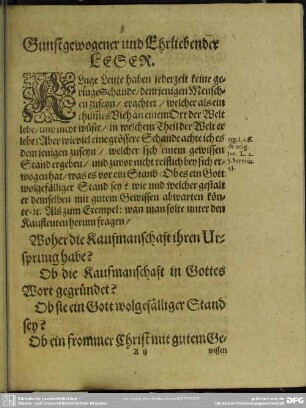 3
Gunstgewogener und Ehrliebender
LESER.
KLuge Leute haben jederzeit keine ge-
ringe Schande/ demjenigen Mensch-
en zuseyn/ erachtet/ welcher als ein
thumes Vieh an einem Ort der Welt
lebe/ und nicht wüste/ in welchem Theil der Welt er
lebe: Aber wie viel eine grössere Schande achte ich es
dem jenigen zuseyn/ welcher sich einem gewissen
Stand ergeben/ und zuvor nicht reifflich bey sich er-
wogen hat/ was es vor ein Stand: Ob es ein Gott
wolgefälliger Stand sey? wie und welcher gestalt
er demselben mit gutem Gewissen abwarten kön-
te. Als zum Exempel: wan man solte unter den
Kauffleuten herum fragen/
Woher die Kaufmanschaft ihren Ur-
sprung habe?
Ob die Kaufmanschaft in Gottes
Wort gegründet?
Ob sie ein Gott wolgefälliger Stand
sey?
Ob ein frommer Christ mit gutem Ge-
A ij
wissen